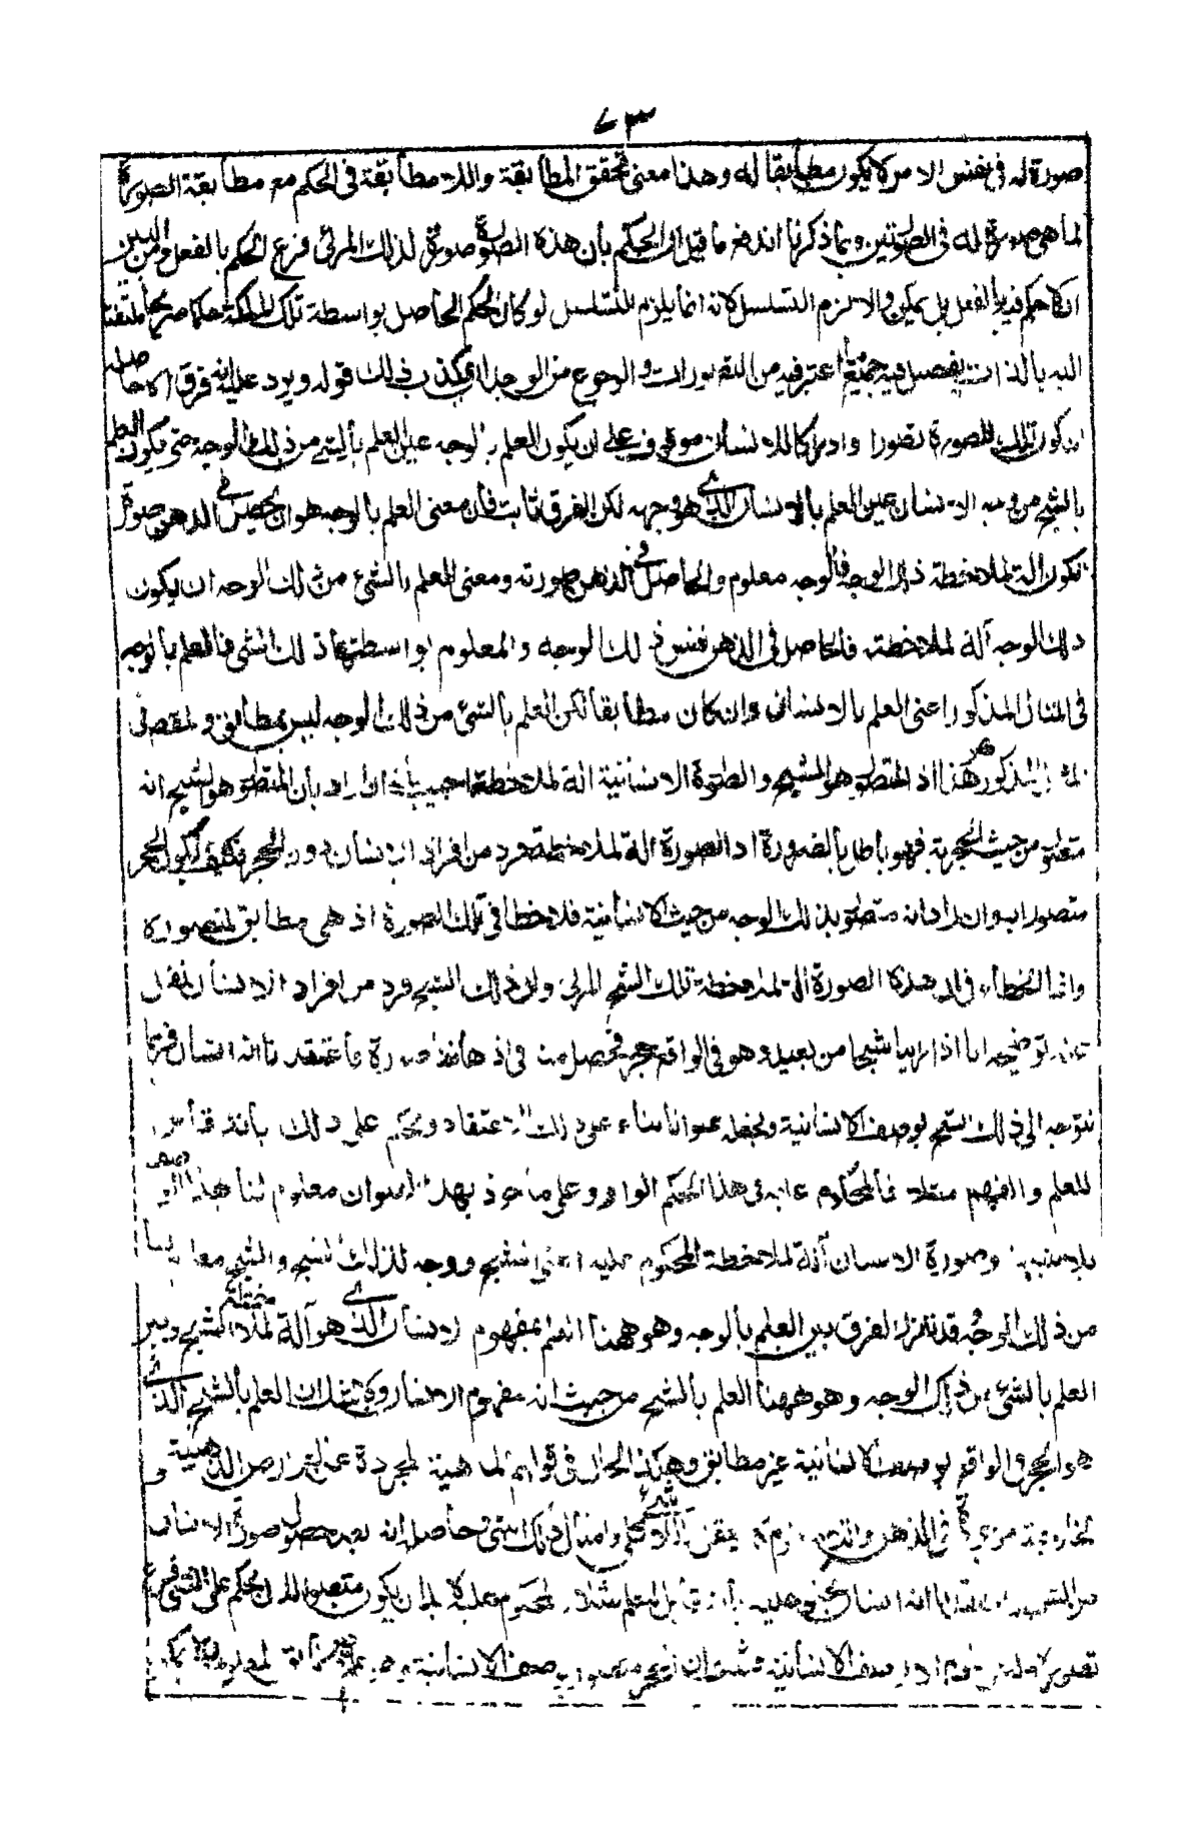 ٧٣
صورة له في نفس الامر لا يكون مطابقا له وهذا معنى تحقق المطابقة واللا مطابقة في الحكم مع مطابقة الصورة
لما هي صورة له في الصورتين وبما ذكرنا اندفع ما قيل ان الحكم بان هذه الصورة صورة لذلك المرئي فرع الحكم بالفعل ومن البين
ان لا حكم فيه بالفعل بل يمكن والا لزم التسلسل لانه انما يلزم التسلسل لو كان الحكم الحاصل بواسطة تلك الملكة حكما صريحا ملتفتا
اليه بالذات يفصل فيه جميع ما اعتبر فيه من التصورات والرجوع من الوجدان يكذب ذلك قوله ويرد عليه انه فرق الا حاصله
ان كون تلك الصورة تصورا وادراكا للانسان موقوف على ان يكون العلم بالوجه عين العلم بالشيء من ذلك الوجه حتى يكون العلم
بالشبح من وجه الانسان عين العلم بالانسان الذي هو وجهه لكن الفرق ثابت فان معنى العلم بالوجه هو ان يحصل في الذهن صورة
تكون الة لملاحظة ذلك الوجه فالوجه معلوم والحاصل في الذهن صورته ومعنى العلم بالشئ من ذلك الوجه ان يكون
ذلك الوجه آلة لملاحظته فالحاصل في الذهن نفس ذلك الوجه والمعلوم بواسطتها ذلك الشئ فالعلم بالوجه
في المثال المذكور اعني العلم بالانسان وان كان مطابقا لكن العلم بالشئ من ذلك الوجه ليس بمطابق والمقصود
المذكور هو هذا اذ المتصور هو الشبح والصورة الانسانية الة لملاحظته اجيب بانه ان اراد بان المتصور هو الشبح انه
متصور من حيث الحجرية فهو باطل بالضرورة اذ الصورة الة لملاحظة فرد من افراد الانسان دون الحجر فكيف يكون الحجر
متصورا به وان اراد انه متصور بذلك الوجه من حيث الانسانية فلا خطا في تلك الصورة اذ هي مطابق لمتصوره
وانما الخطاء في ان هذه الصورة الة لملاحظة تلك الشبح المرئي وان ذلك الشبح فرد من افراد الانسان نقل
عنه توضيحه انا اذا راينا شبحا من بعيد وهو في الواقع حجر فحصل منه في اذهاننا صورة فاعتقدنا انه انسان
نتوجه الى ذلك الشبح بوصف الانسانية ونجعله عنوانا بناء على ذلك الاعتقاد ونحكم على ذلك بانه قابل
للعلم والفهم مثلا فالمحكوم عليه في هذا الحكم الوارد على ماخوذ بهذا العنوان معلوم لنا بهذا الوصف
بلا شبهة وصورة الانسان آلة لملاحظة المحكوم عليه اعني الشبح ووجه لذلك الشبح والشبح معلوم لنا
من ذلك الوجه قد تقرر الفرق بين العلم بالوجه وهو ههنا العلم بمفهوم الانسان الذي هو آلة لملاحظة الشبح وبين
العلم بالشئ من ذلك الوجه وهو ههنا العلم بالشبح من حيث انه مفهوم الانسان ولا شك ان العلم بالشبح الذي
هو الحجر في الواقع بوصف الانسانية غير مطابق وهكذا الحال في قولهم الماهية المجردة عن العوارض الذهنية و
الخارجية موجودة في الذهن وامثال ذلك حاصله انه بعد حصول صورة الانسان
من الشبح واعتقدنا انه انسان بانه قابل للعلم مثلا المحكوم عليه لا بد ان يكون متصورا لان الحكم على الشئ فرع
تصوره وصف الانسانية بوصف الانسانية